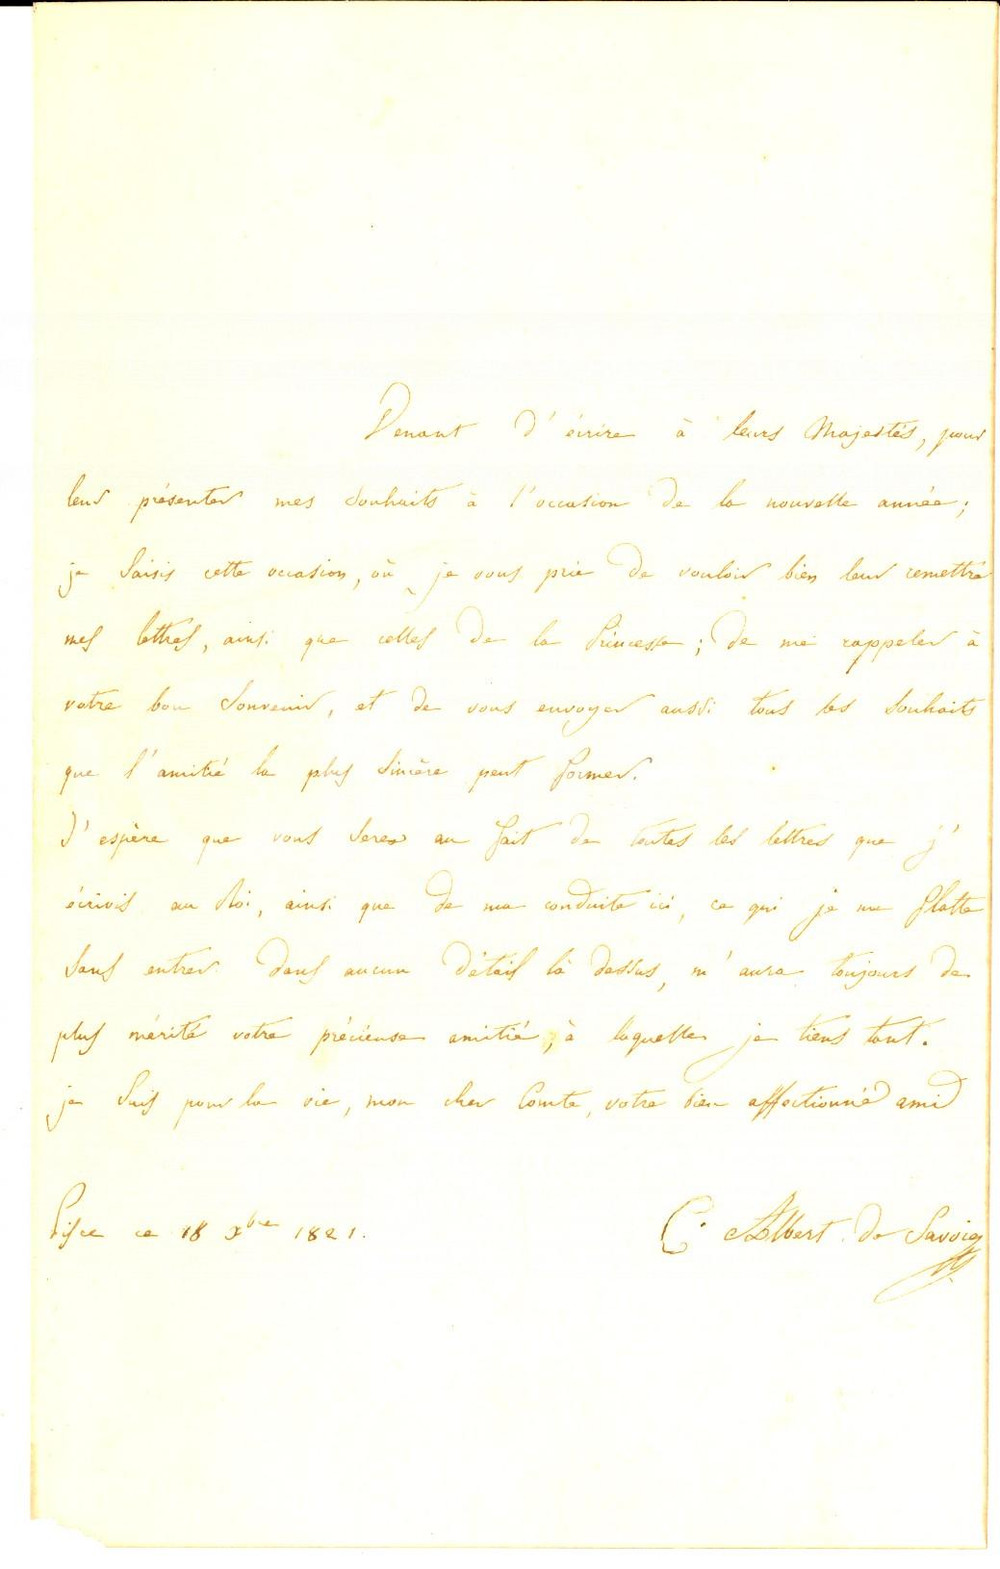 Venant d'écrire à leurs Majestés, pour
leur présenter mes souhaits à l'occasion de la nouvelle année;
je saisis cette occasion, où je vous prie de vouloir bien leur remettre
mes lettres, ainsi que celles de la Princesse; de me rappeler à
votre bon souvenir, et de vous envoyer aussi tous les souhaits
que l'amitié la plus sincère peut former.
J'espère que vous serez au fait de toutes les lettres que j'
écrivis au Roi, ainsi que de ma conduite ici, ce qui je me flatte
sans entrer dans aucun détail là dessus, m'aura toujours de
plus mérité votre précieuse amitié, à laquelle je tiens tant.
je suis pour la vie, mon cher Comte, votre bien affectionné ami
ce 18 Xbre 1821.
C. Albert de Savoie